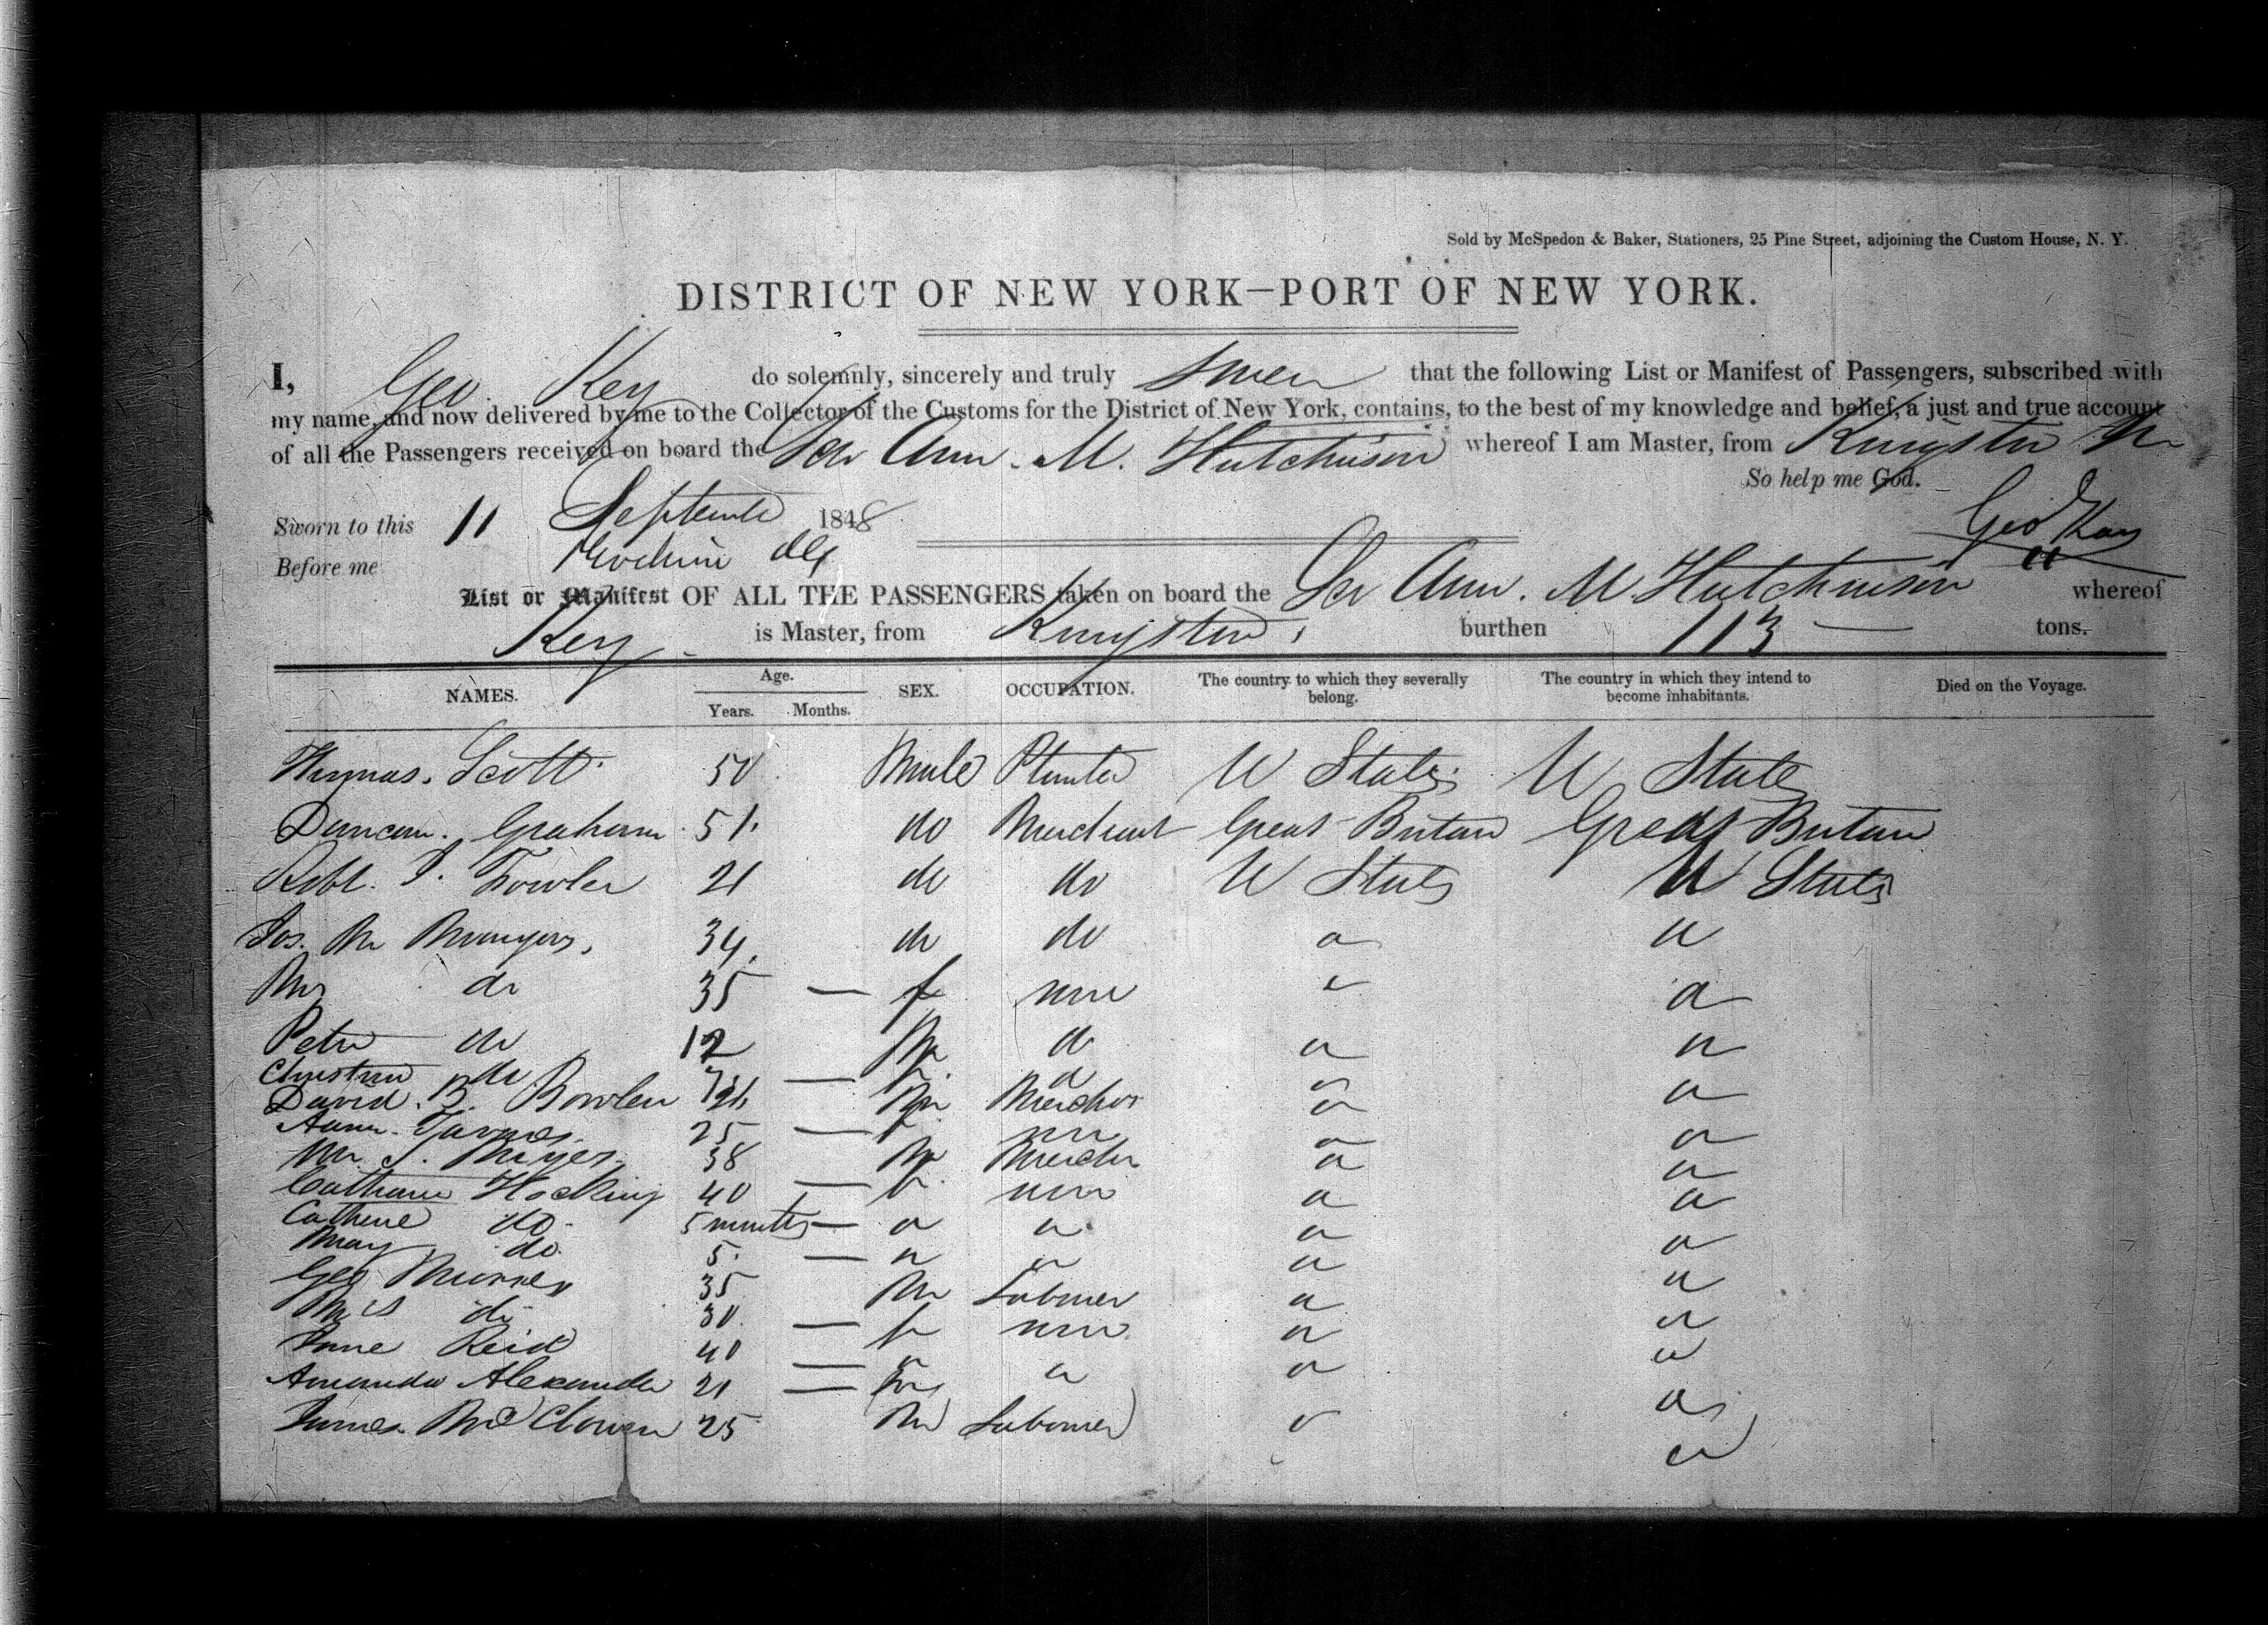 Sold by McSpedon & Baker, Stationers, 25 Pine Street, adjoining the Custom House, N. Y.
DISTRICT OF NEW YORK—PORT OF NEW YORK.
I, Geo. Key do solemnly, sincerely and truly swear that the following List or Manifest of Passengers, subscribed with
my name, and now delivered by me to the Collector of the Customs for the District of New York, contains, to the best of my knowledge and belief, a just and true account
of all the Passengers received on board the Schr Ann. M. Hutchinson whereof I am Master, from Kingston
So help me God.
Sworn to this 11 September 1848
Geo Key
Before me
List or Manifest OF ALL THE PASSENGERS taken on board the Schr Ann. M. Hutchinson whereof
Key is Master, from Kingston, burthen 113 — tons.
NAMES. Age. Years. Months. SEX. OCCUPATION. The country to which they severally belong. The country in which they intend to become inhabitants. Died on the Voyage.
Thomas. Scott 50 Male Planter U States U States
Duncan. Graham 51 do Merchant Great Britain Great Britain
Robt. Fowler 21 do do U States U States
Jos. 34 do do " "
Mrs do 35 — f none " "
Peter do 12 M " " "
Christina do — f " " "
David. B. Bowlen M " "
25 — f " "
Mr. 38 M " "
Catharine Hocking 40 — f none " "
Catherine do 5 months — " " " "
Mary do 5 — " " " "
Geo 35 M Labourer " "
Mrs do 30 — f none " "
Jane Reid 40 — " " " "
Amanda Alexander 21 — "
James Mc Clowen 25 M Labourer " "